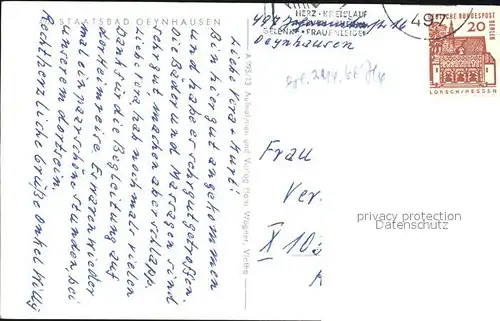 STAATSBAD OEYNHAUSEN
Liebe Vera + Kurt!
Bin hier gut angekommen
und habe es sehr gut getroffen.
Die Bäder und Massagen sind
sehr gut, machen aber schlapp.
Liebe Vera, hab nochmals vielen
Dank für die Begleitung auf
der Heimreise. Es waren wieder
mal ein paar schöne Stunden, bei
unserem dortsein.
Recht herzliche Grüße Onkel Willy
Aufnahmen und Verlag Hans Wagner, Vlotho
HERZ · KREISLAUF
GELENK · FRAUENLEIDEN
Oeynhausen
497
DEUTSCHE BUNDESPOST
BERLIN
20
LORSCH/HESSEN
Frau
Ver
X 10
privacy protection
Datenschutz